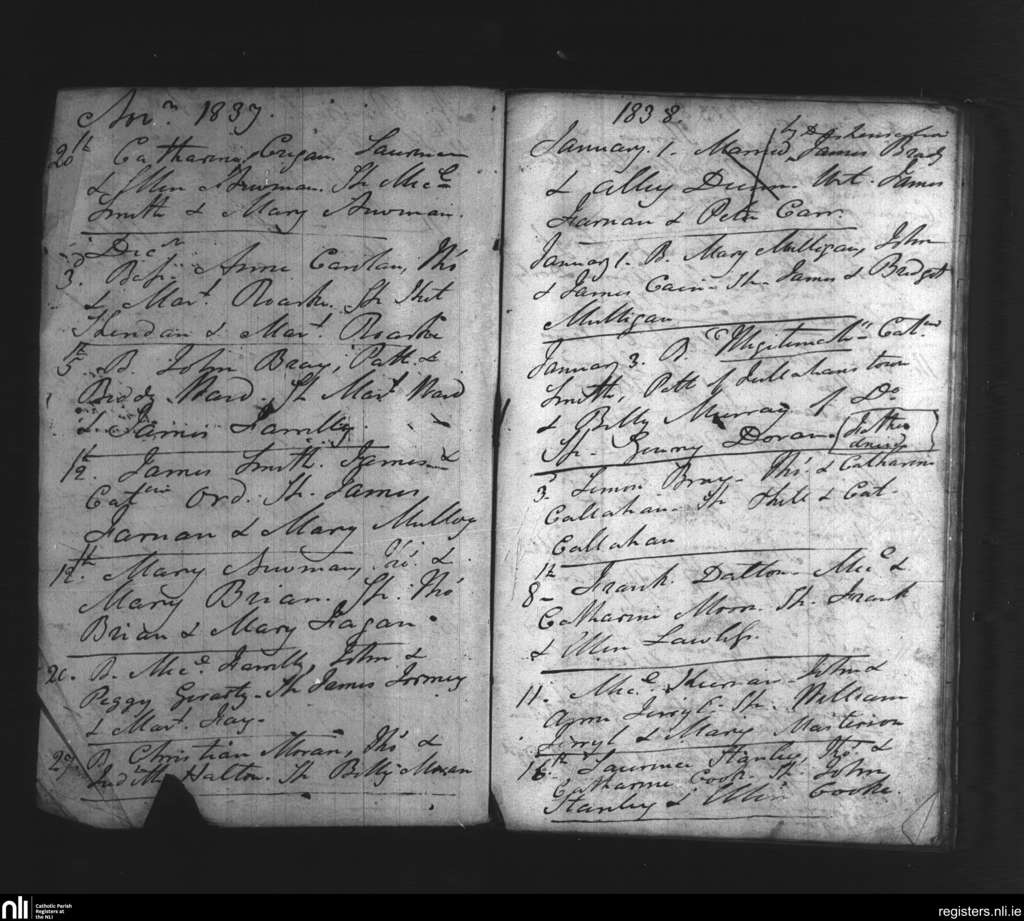 Novr. 1837.
20th Catharine Cregan. Laurence
& Ellen Newman. Sp. Micl.
Smith & Mary Newman.
Decr.
3d. Bap. Anne Carolan, Thos
& Mart. Roarke. Sp. Kit
Sheridan & Mart. Roarke
5th B. John Bray, Patt. &
Biddy Ward. Sp. Mart. Ward
& James Farrelly
12th. James Smith. James &
Cathrin Ord. Sp. James
Farnan & Mary Mulloy
12th. Mary Newman, Thos. &
Mary Brian. Sp. Thos
Brian & Mary Fagan.
20. B. Micl. Farrelly, John &
Peggy Gerarty. Sp. James Tormey
& Mart. Kay.
27 B. Christian Moran, Thos. &
Judith Halton. Sp. Billy Moran
1838.
by
January. 1. Married, James Brady
& Alley Dunn. Wit. James
Farnan & Peter Carr.
January 1. B. Mary Mulligan, John
& James Cain. Sp. James & Bridget
Mulligan
January 3. B. "Illegitimate" Catne
Smith, Patt of Jullahanstown
& Billy Murray of Do
Sp. Jenny Doran. Father
denied
3. Simon Bray. Thos. & Catharine
Callahan. Sp. Phill & Cat.
Callahan
8th. Frank Dalton. Micl. &
Catharine Moore. Sp. Frank
& Ellen Lawless.
11. Micl. Kiernan. John &
Anne Tirryl. Sp. William
Tirryl & Mary Masterson
16th. Laurence Stanley, Thos. &
Catharine Cook. Sp. John
Stanley & Ellen Cooke.
nli
Catholic Parish
Registers at
the NLI
registers.nli.ie